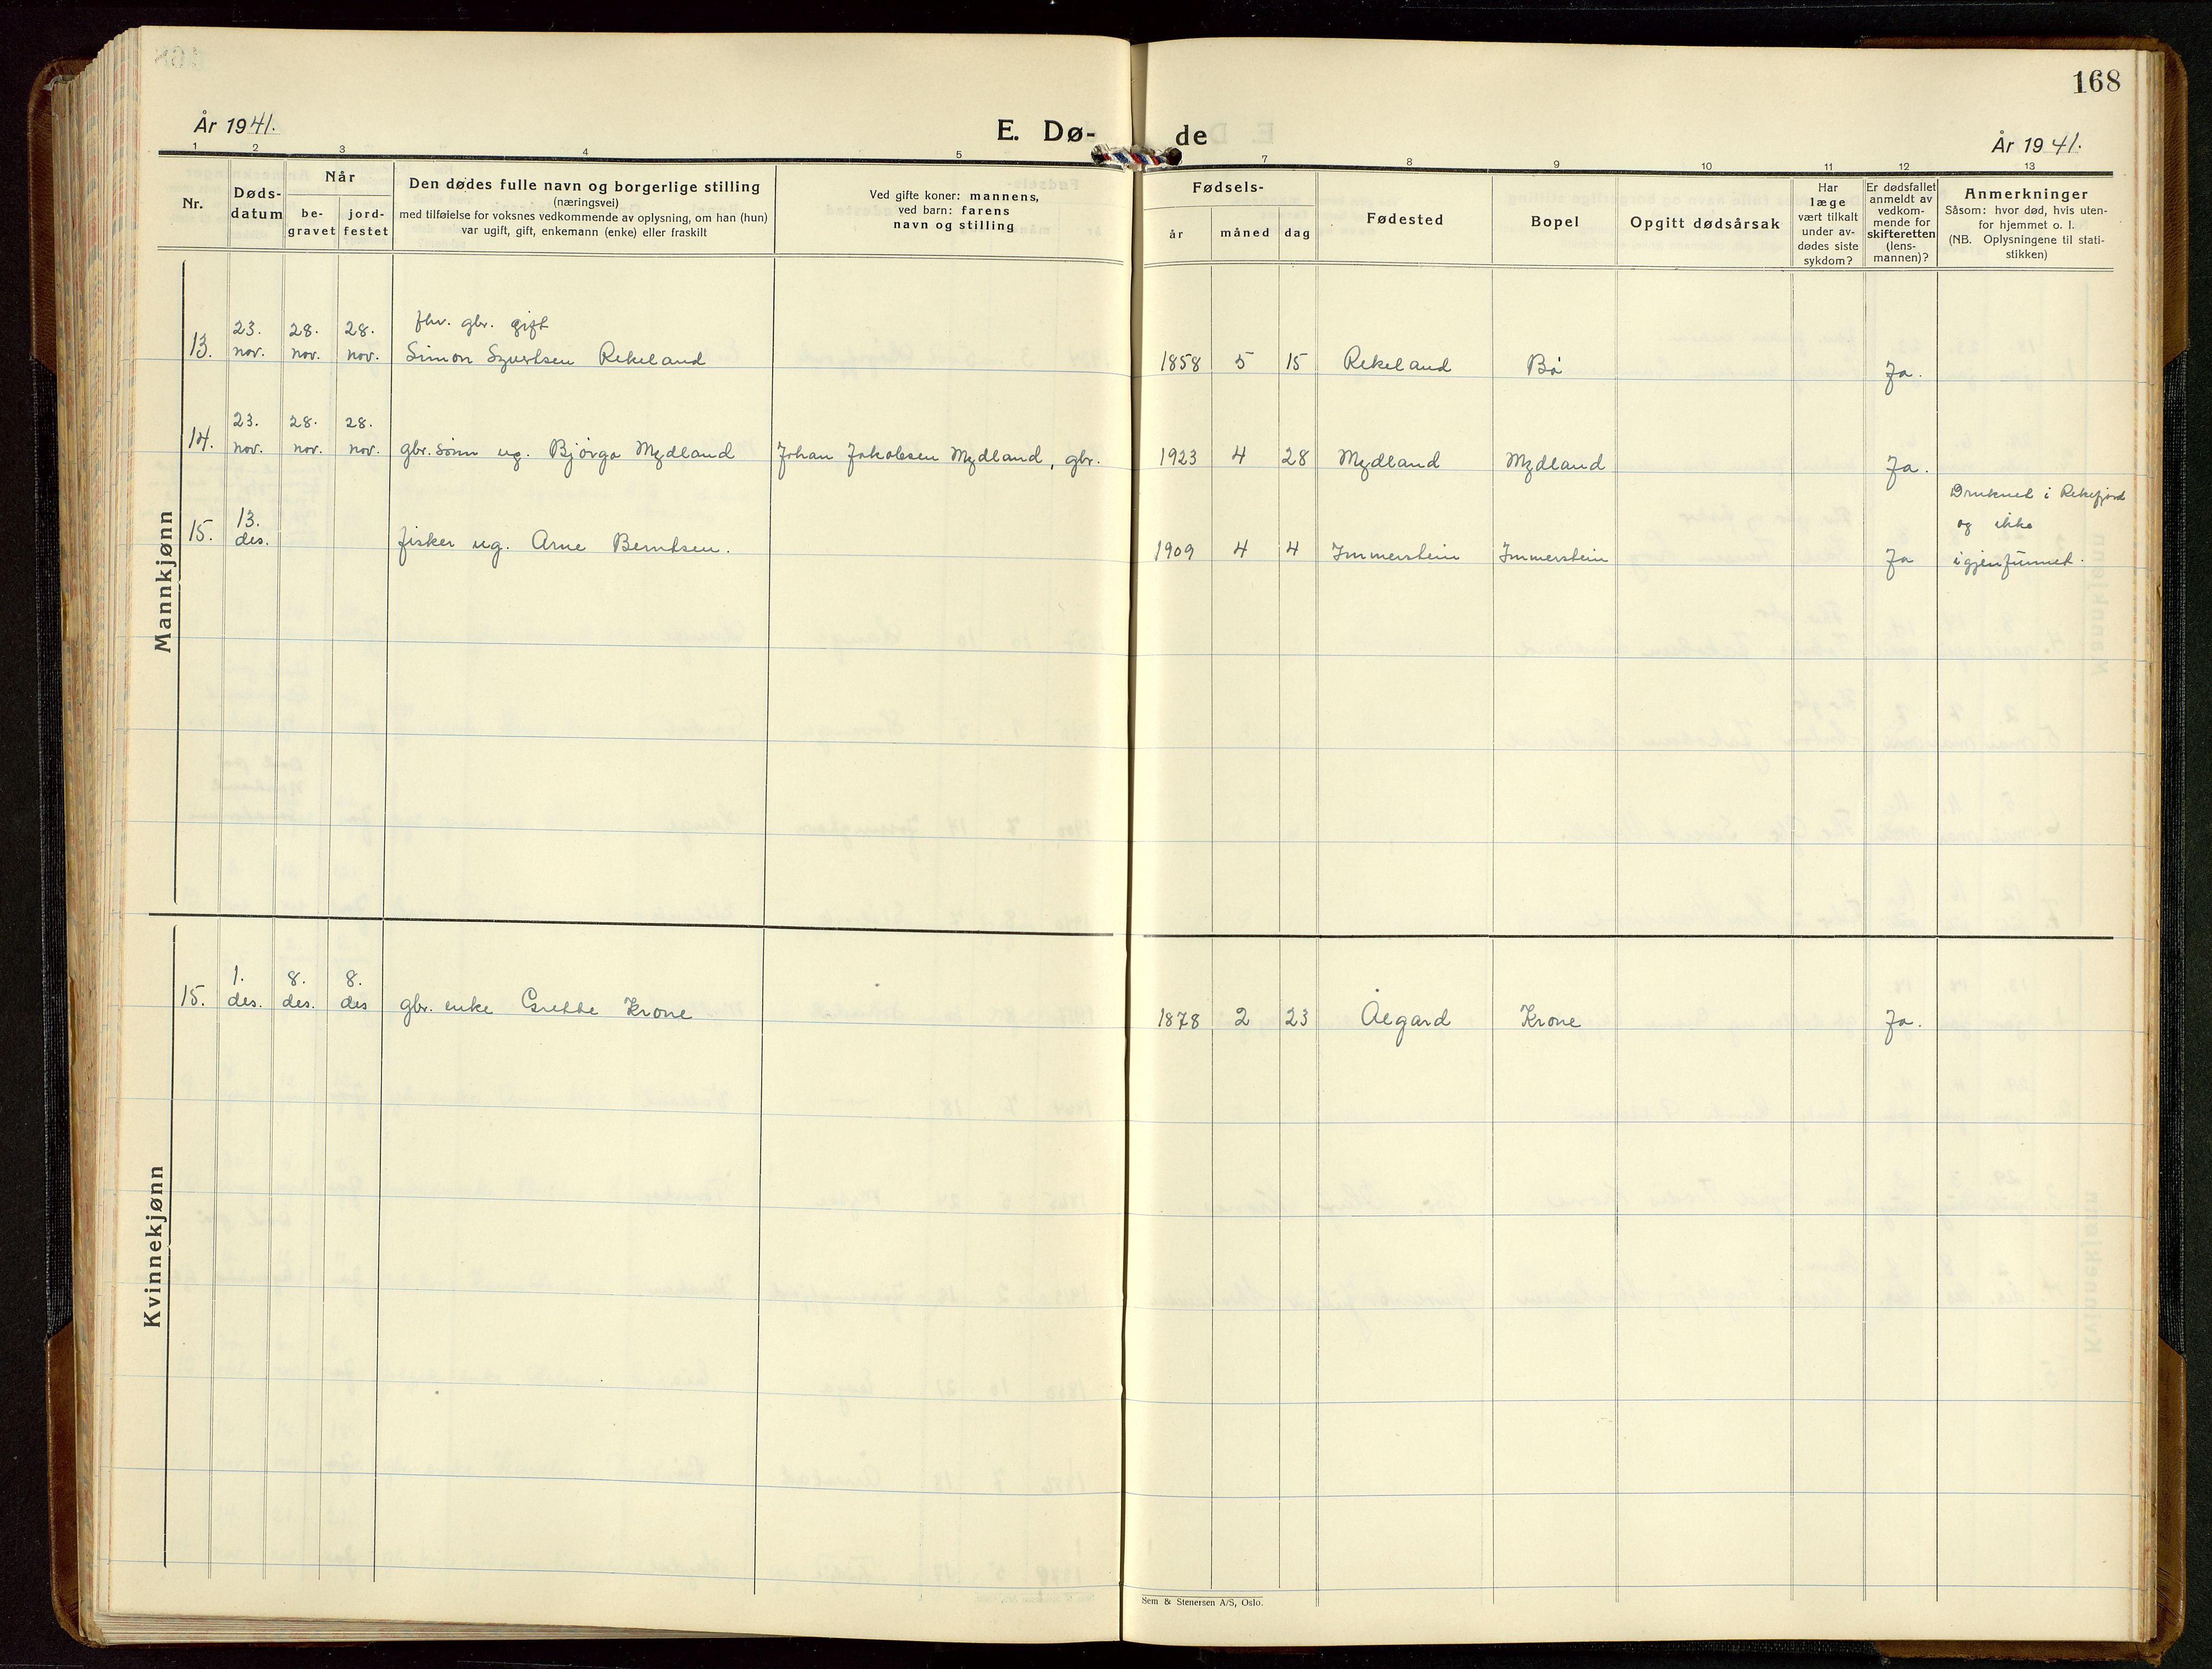 168
År 1941.
E. Dø-
de
År 1941.
1 2 3 4 5
7 8 9 10 11 12 13
Nr.
Døds-
datum
Når
be-
gravet
jord-
festet
Den dødes fulle navn og borgerlige stilling
(næringsvei)
med tilføielse for voksnes vedkommende av oplysning, om han (hun)
var ugift, gift, enkemann (enke) eller fraskilt
Ved gifte koner: mannens,
ved barn: farens
navn og stilling
Fødsels-
år måned dag
Fødested
Bopel
Opgitt dødsårsak
Har
læge
vært tilkalt
under av-
dødes siste
sykdom?
Er dødsfallet
anmeldt av
vedkom-
mende for
skifteretten
(lens-
mannen)?
Anmerkninger
Såsom: hvor død, hvis uten-
for hjemmet o. l.
(NB. Oplysningene til stati-
stikken)
Mannkjønn
23. 28. 28. fhv. gbr. gift
13. nov. nov. nov. Simon Syvertsen Rekeland 1858 5 15 Rekeland Bø Ja.
23. 28. 28.
14. nov. nov. nov. gbr. sønn ug. Bjørgo Mydland Johan Jakobsen Mydland, gbr. 1923 4 28 Mydland Mydland Ja.
Druknet i Rekefjord
13. og ikke
15. des. fisker ug. Arne Berntsen. 1909 4 4 Immerstein Immerstein Ja igjenfunnet.
Kvinnekjønn
1. 8. 8.
15. des. des. des gbr. enke Grethe Krone 1878 2 23 Ålgard Krone Ja.
Sem & Stenersen A/S, Oslo.